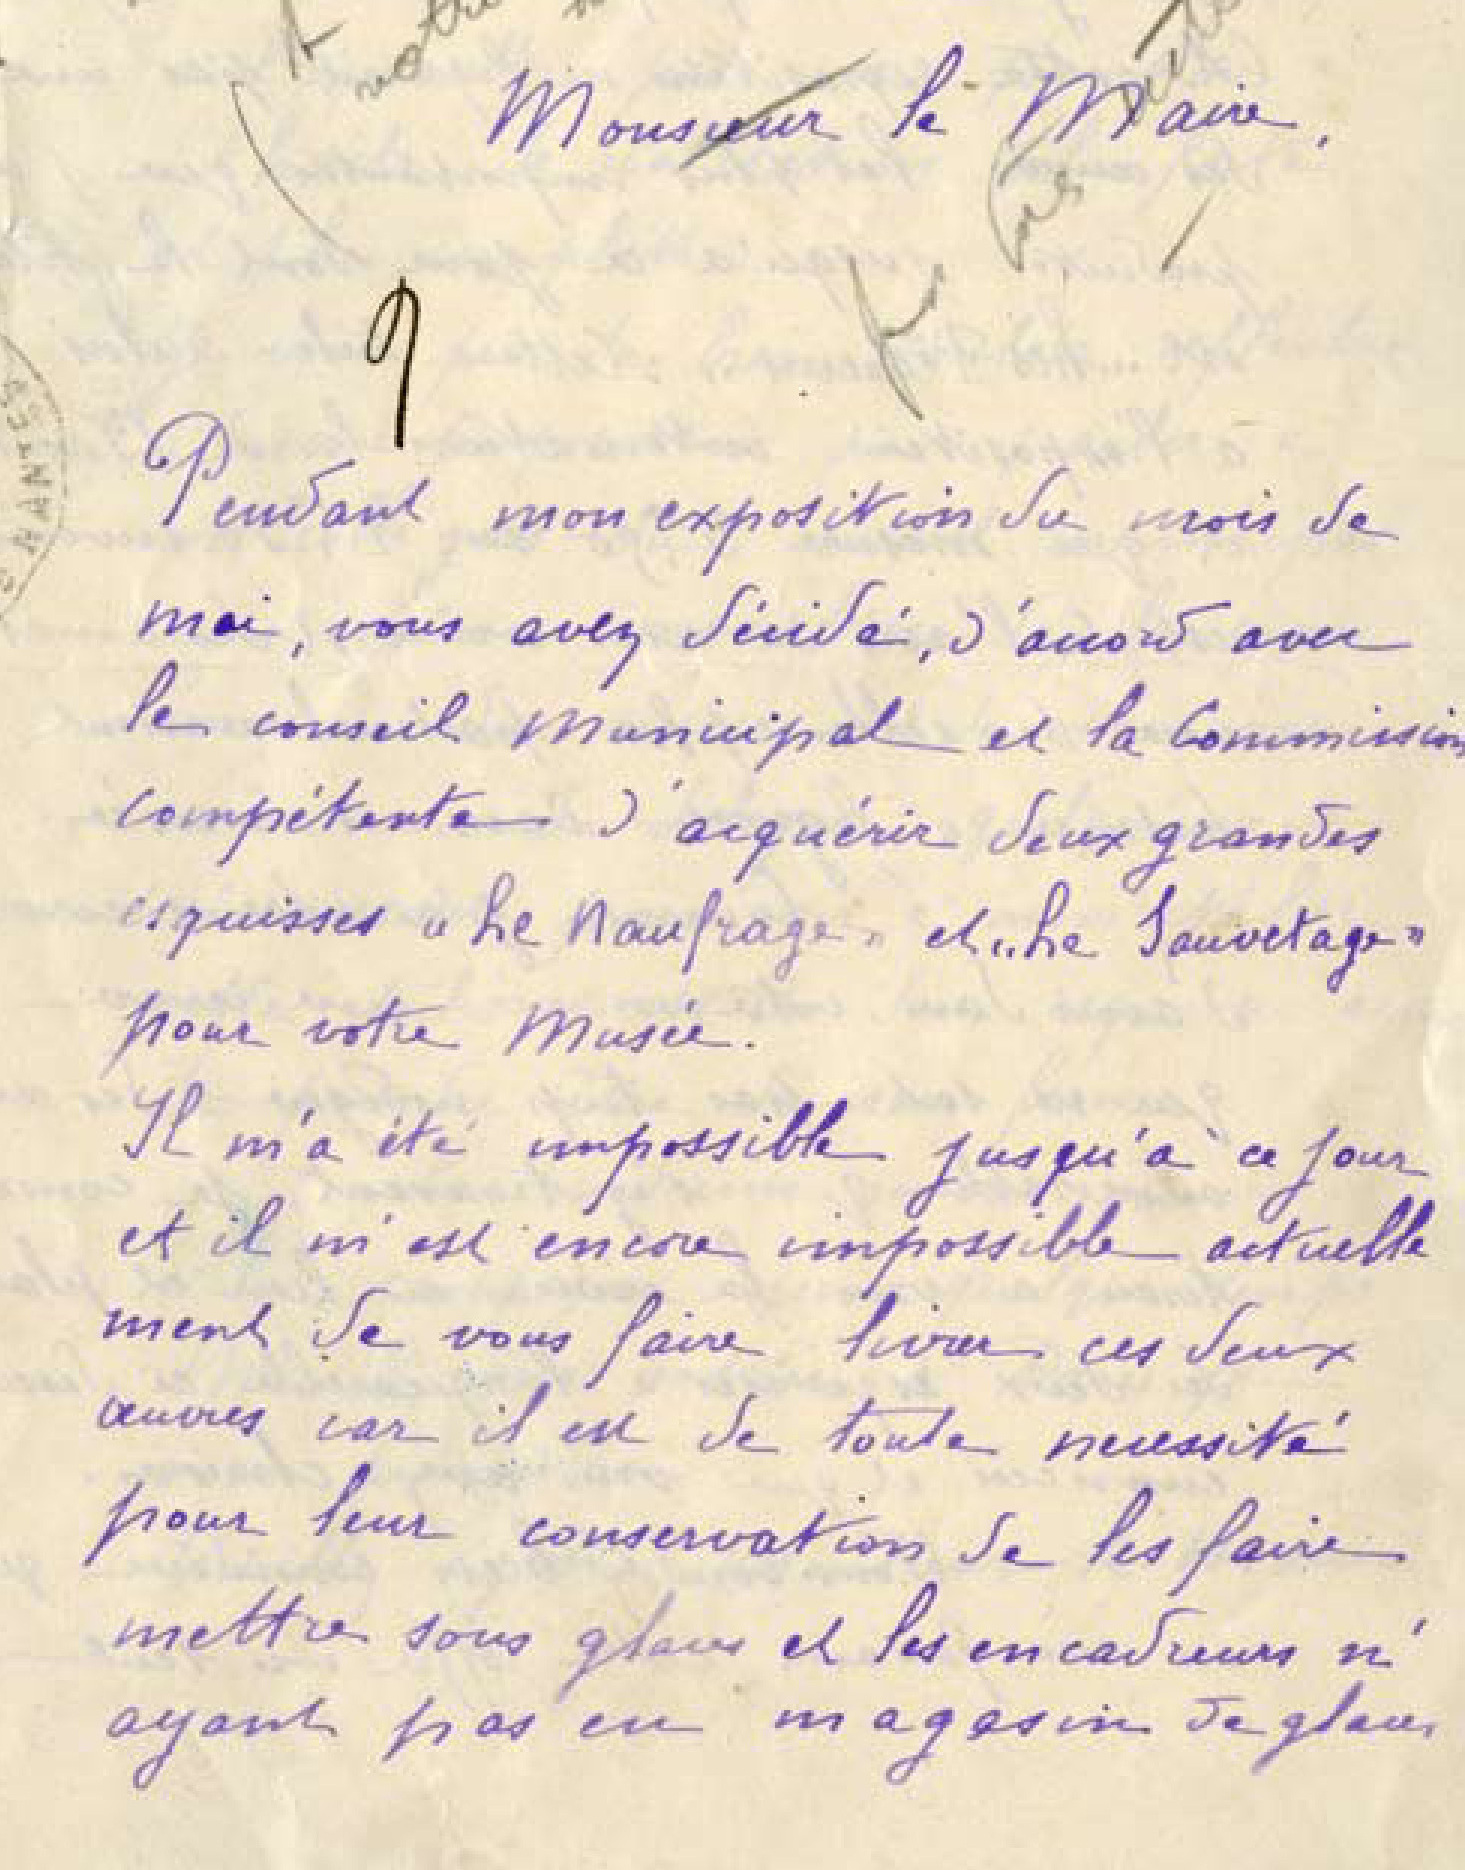 votre
Monsieur le Maire,
Pendant mon exposition du mois de
mai, vous avez décidé, d'accord avec
le conseil Municipal et la Commission
compétente d'acquérir deux grandes
esquisses "Le Naufrage" et "Le Sauvetage"
pour votre Musée.
Il m'a été impossible jusqu'à ce jour
et il m'est encore impossible actuelle
ment de vous faire livrer ces deux
œuvres car il est de toute necessité
pour leur conservation de les faire
mettre sous glaces et les encadreurs n'
ayant pas en magasin de glaces
NANTES